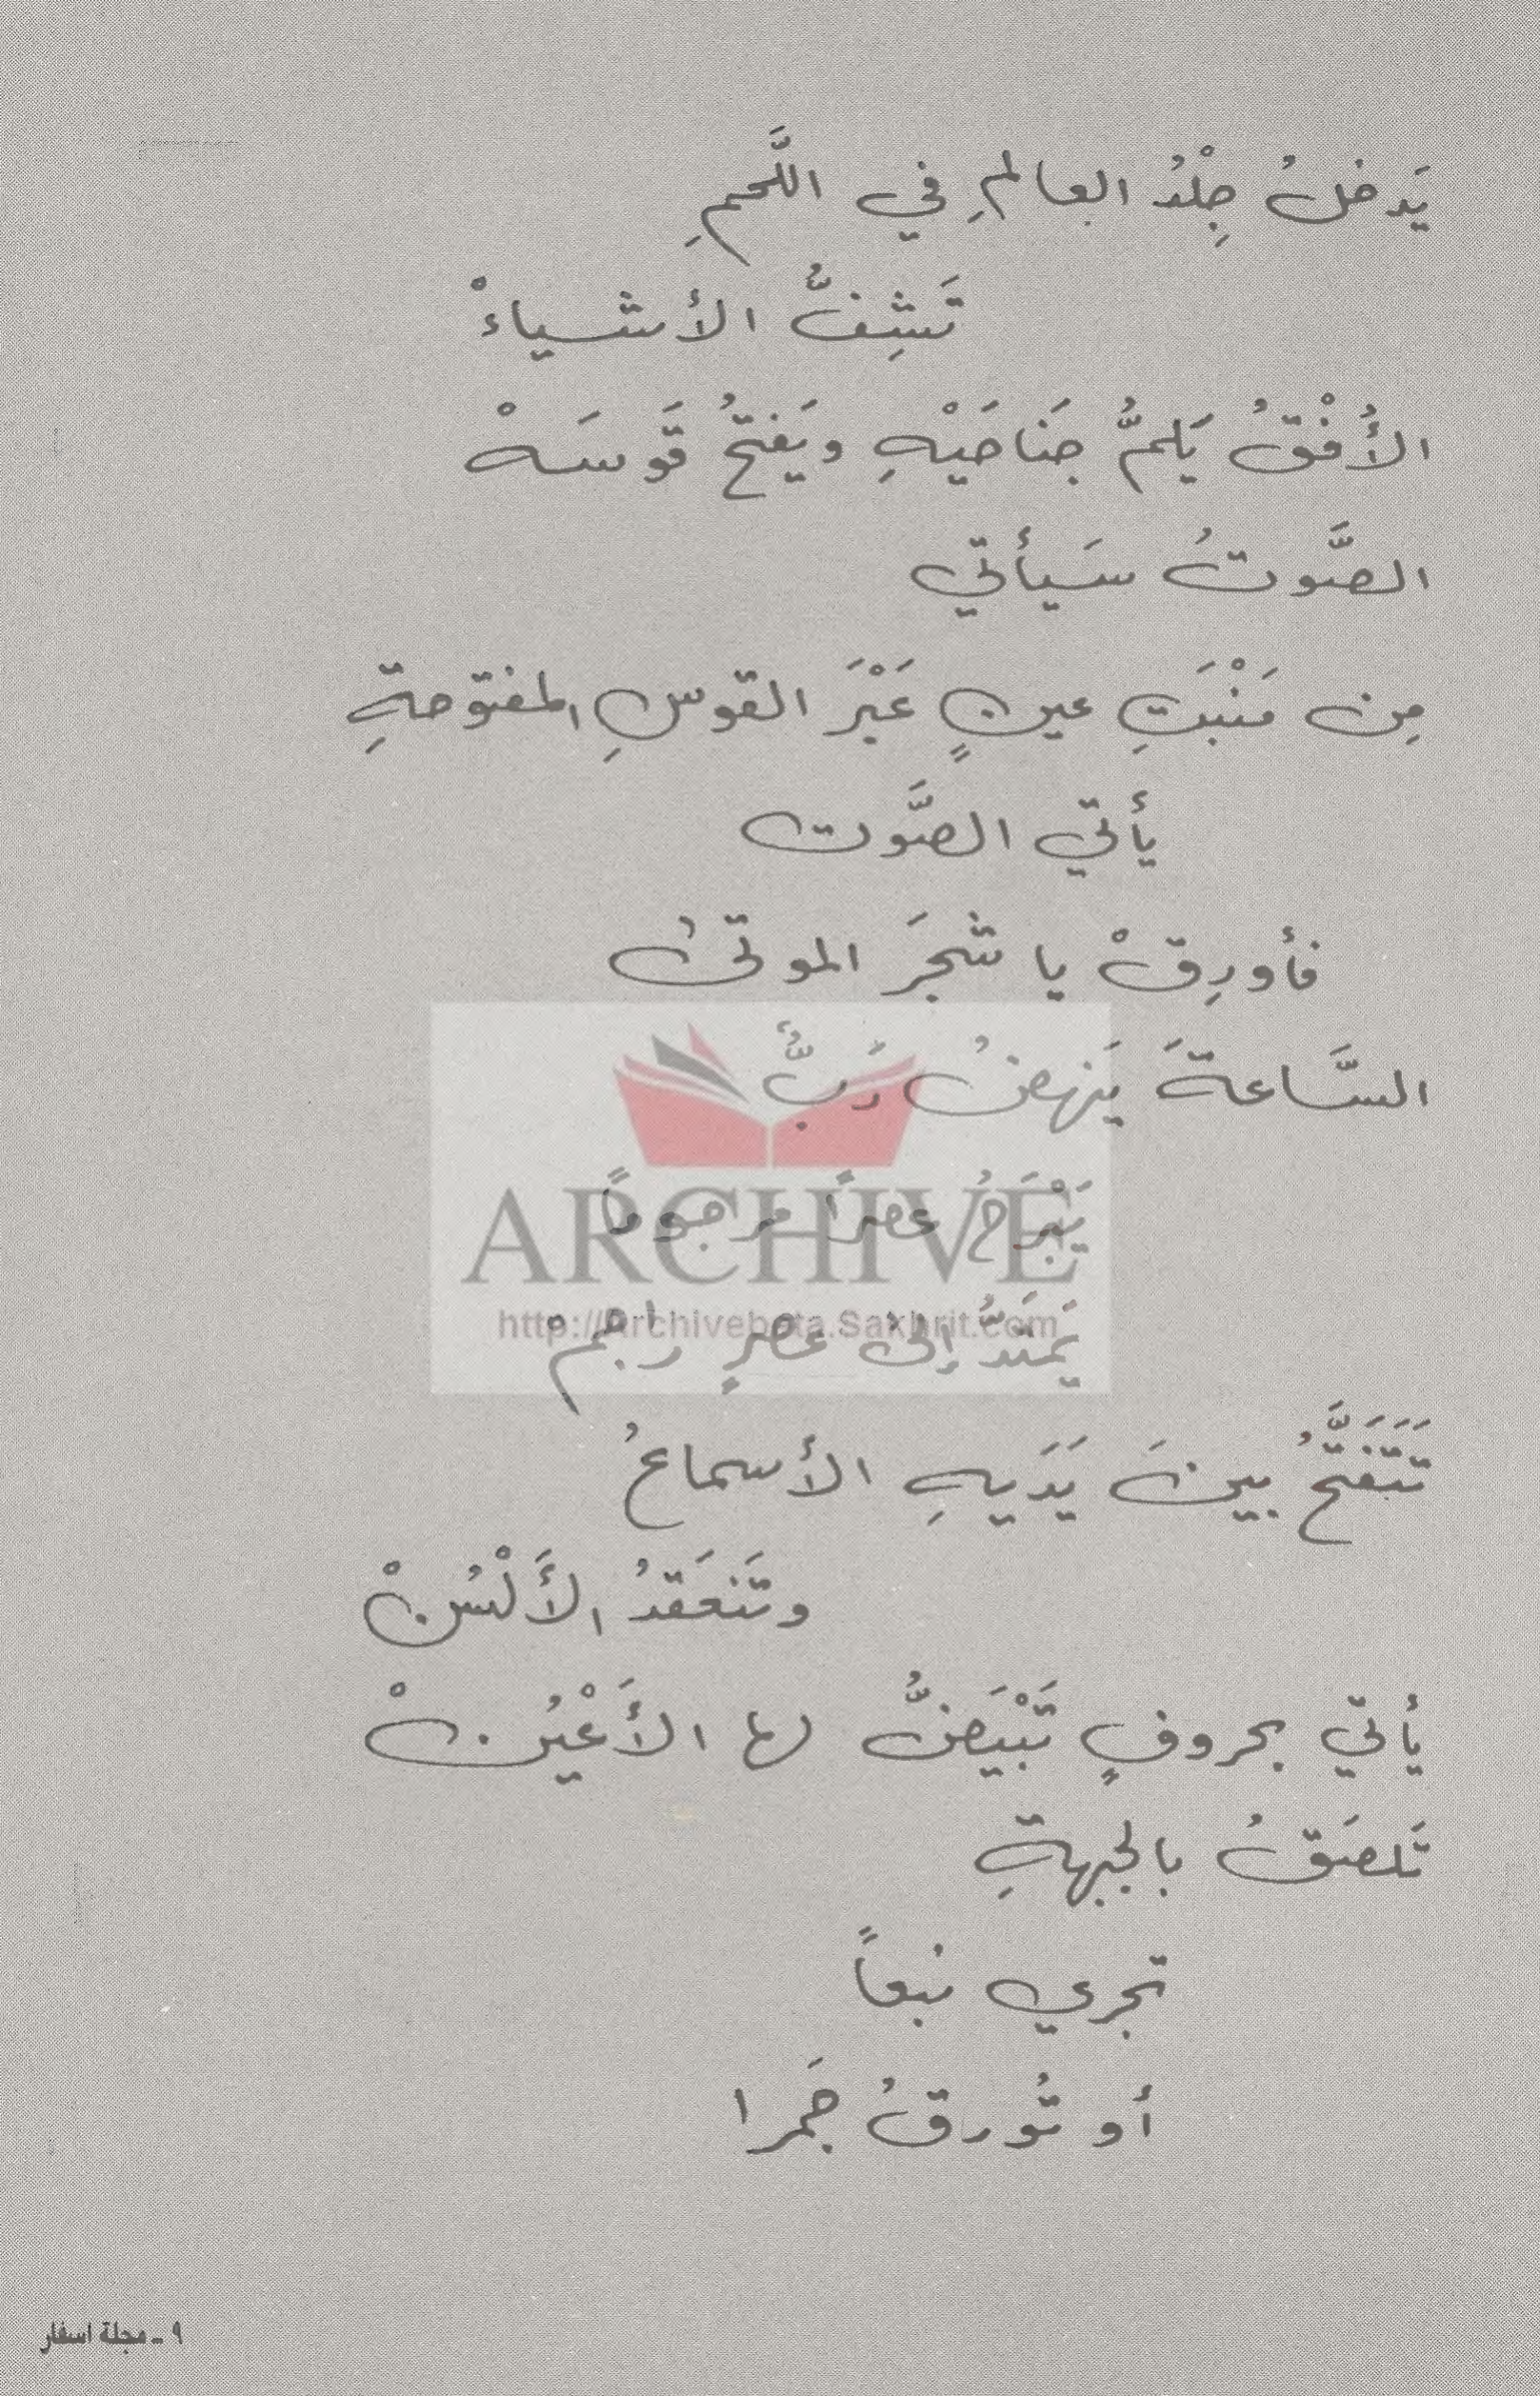 يَدخلُ جِلْدُ العالمِ في اللَّحمِ
تَشِفُّ الأشياءْ
الأُفْقُ يَلمُّ جَناحَيْهِ ويَفتحُ قَوسَهْ
الصَّوتُ سَيأتي
مِن مَنْبَتِ عينٍ عَبْرَ القوسِ المفتوحةِ
يأتي الصَّوت
فأورِقْ يا شجرَ الموتىٰ
السَّاعةَ يَنهضُ رَبٌّ
يَبْرَحُ عصراً مرجوماً
يَمتَدُّ إلىٰ عصرٍ راجمْ
تَتَفَتَّحُ بينَ يَدَيهِ الأسماعُ
وتَنعَقدُ الأَلْسُنْ
يأتي بحروفٍ تَبْيَضُّ لها الأَعْيُنْ
تَلصَقُ بالجبهةِ
تجري نبعاً
أو تُورقُ جَمرا
ARCHIVE
http://Archivebeta.Sakhrit.com
٩ ـ مجلة اسفار